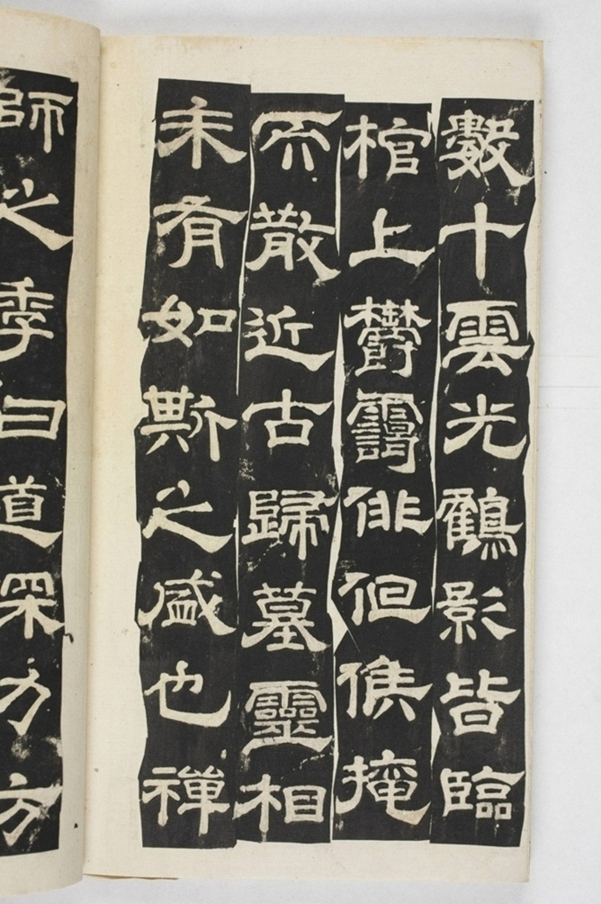 數十雲光鶴影皆臨
棺上欝靄俳佪倏掩
而散近古歸墓靈相
未有如斯之盛也禪
師之季曰道深方方